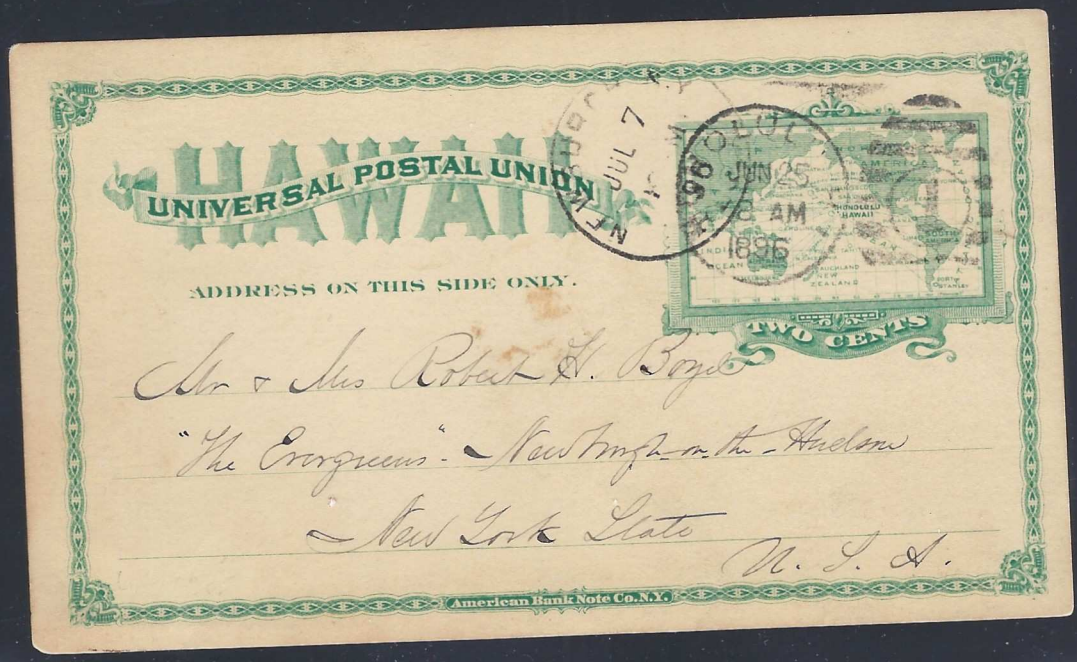 HAWAII
UNIVERSAL POSTAL UNION
ADDRESS ON THIS SIDE ONLY.
JUL 7
96
JUN 25
8 AM
1896
HONOLULU
HAWAII
AUCKLAND
NEW
ZEALAND
SOUTH
OCEAN
TWO CENTS
Mr & Mrs Robert H. Boyd
"The Evergreens" - Newburgh-on-the-Hudson
New York State
U. S. A.
American Bank Note Co. N.Y.